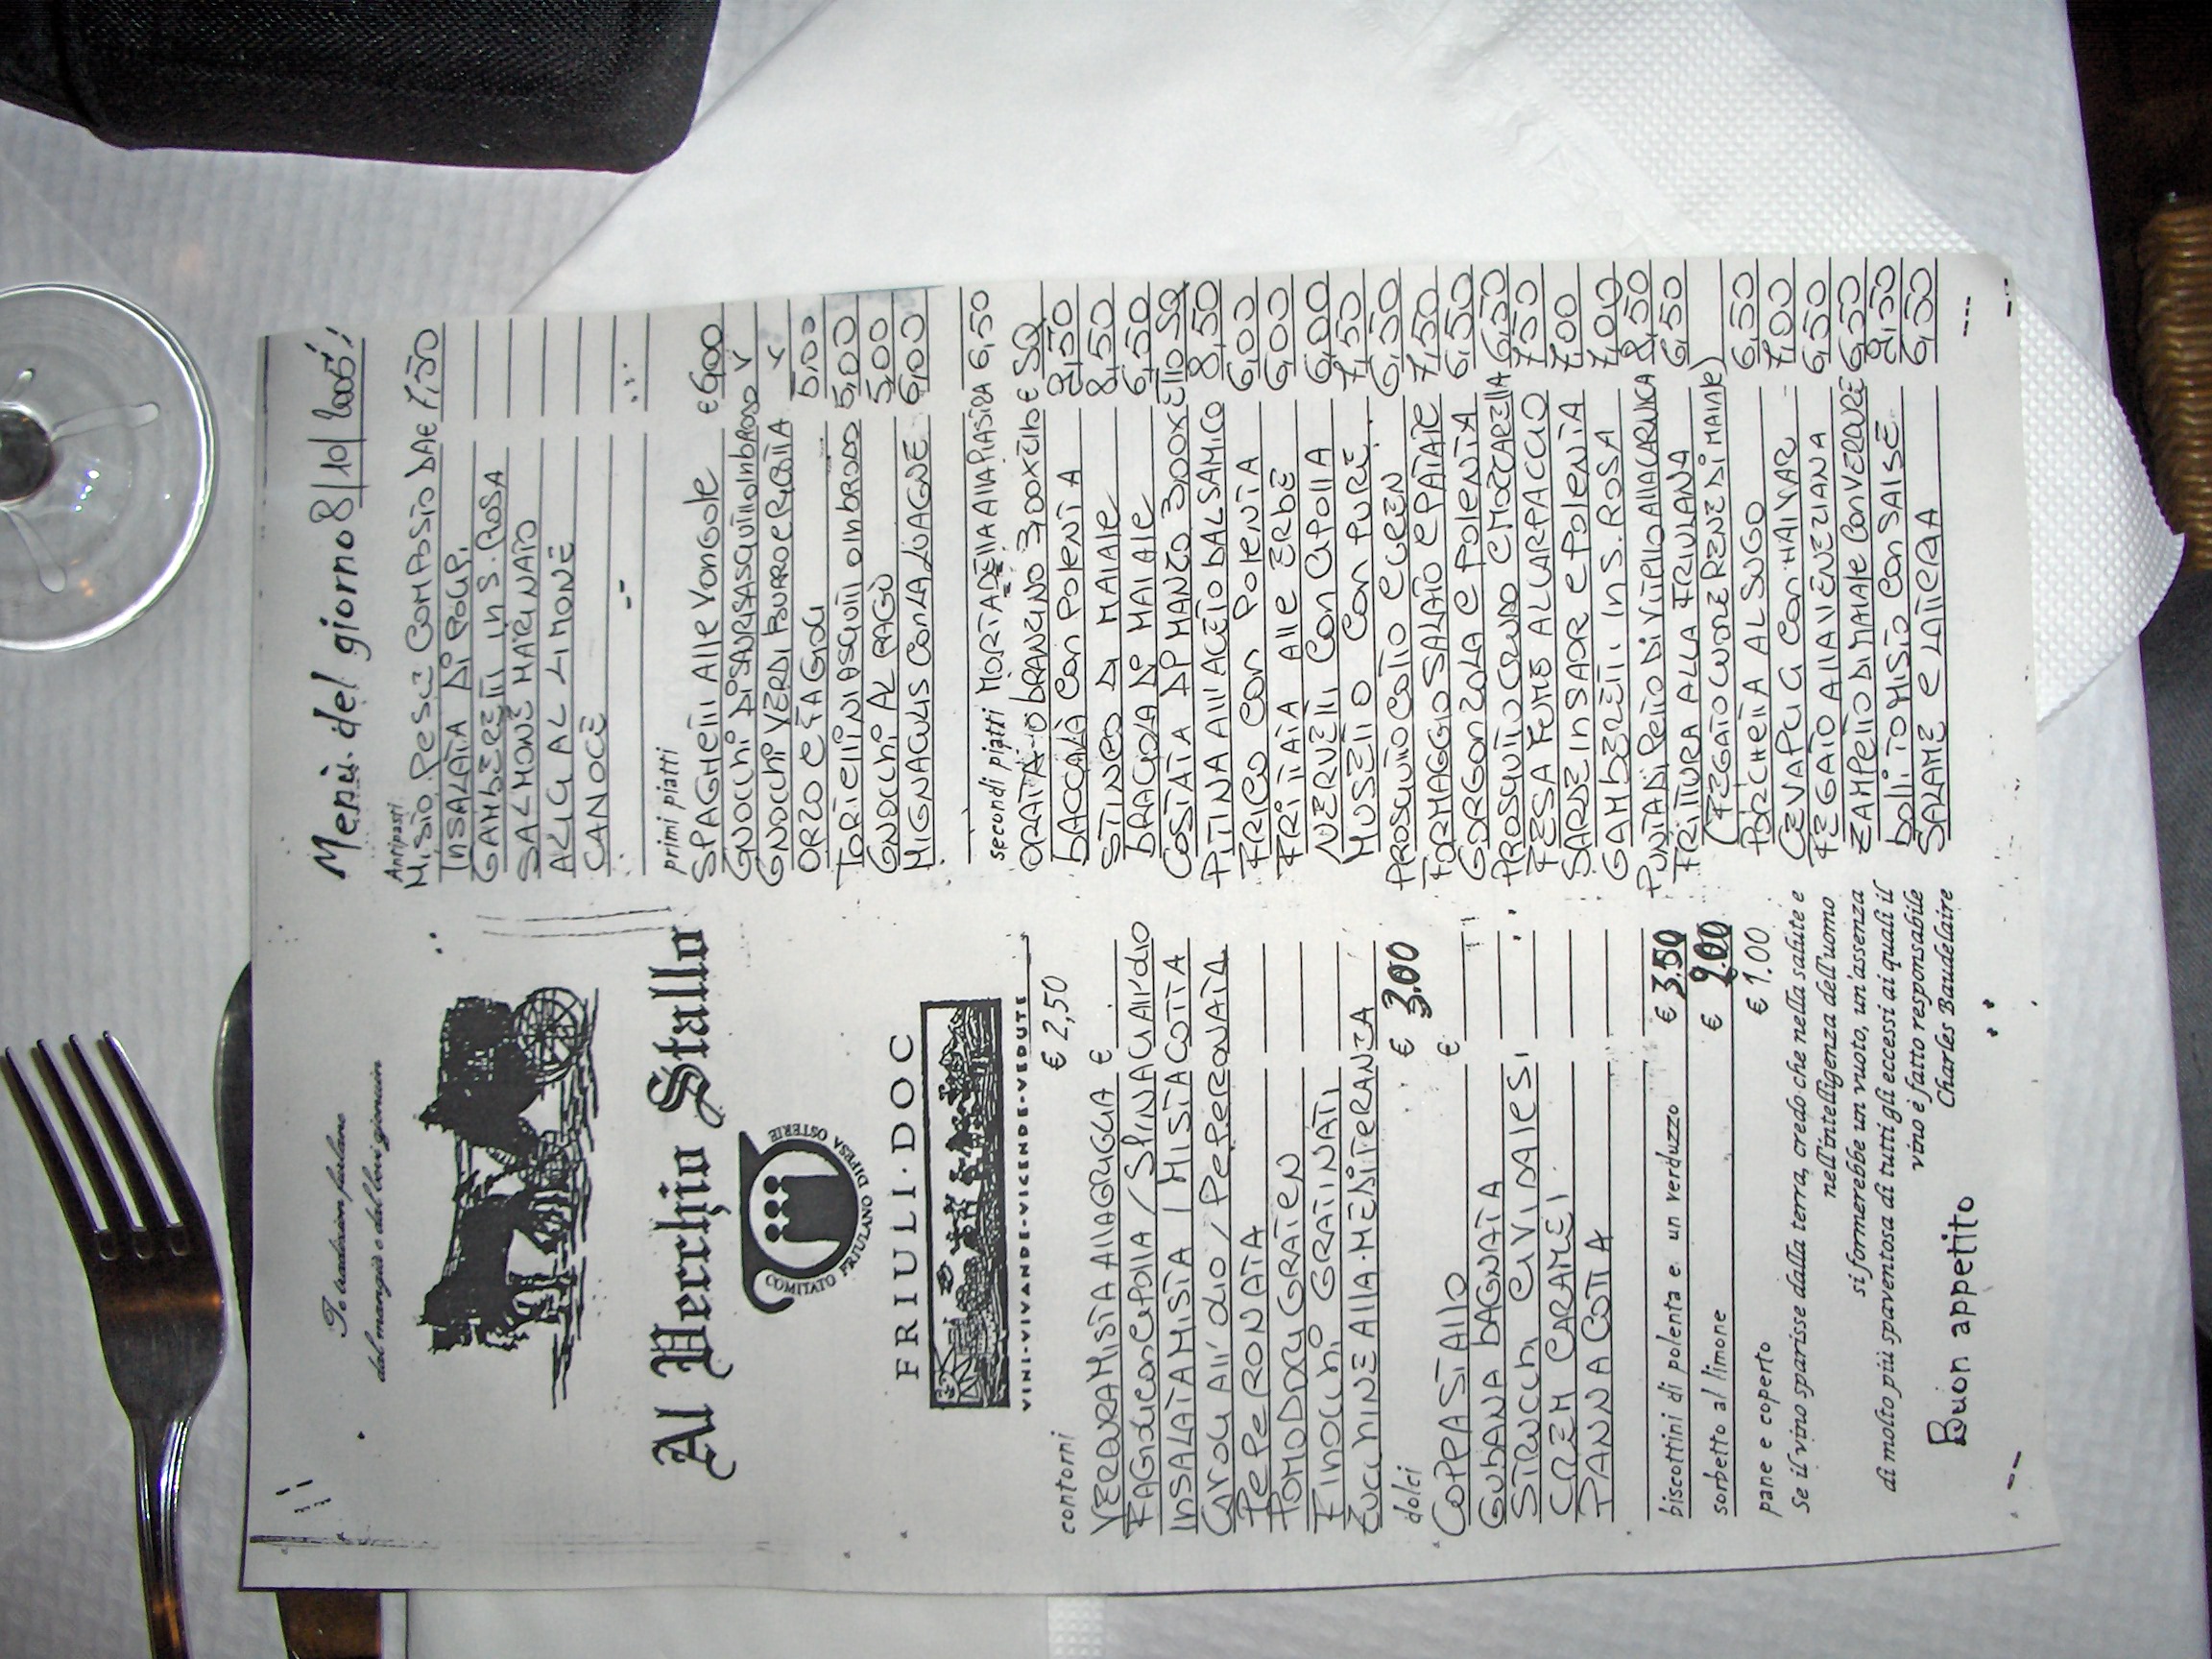 Te tradizion furlane
dal mangjâ e dal bevi genuin
Al Vecchio Stallo
COMITATO FRIULANO DIFESA OSTERIE
FRIULI·DOC
VINI-VIVANDE-VICENDE-VEDUTE
contorni € 2,50
VERDURA MISTA ALLA GRIGLIA €
FAGIOLI CON CIPOLLA / SPINACI ALL'OLIO
INSALATA MISTA / MISTA COTTA
CAROTE ALL'OLIO / PEPERONATA
PEPERONATA
POMODORI GRATEN
FINOCCHI GRATINATI
ZUCCHINE ALLA MEDITERANEA
dolci € 3.00
COPPA STALLO €
GUBANA BAGNATA
STRUCCHI CIVIDALESI
CREM CARAMEL
PANNA COTTA
biscottini di polenta e un verduzzo € 3.50
sorbetto al limone € 2.00
pane e coperto € 1.00
Se il vino sparisse dalla terra, credo che nella salute e
nell'intelligenza dell'uomo
si formerebbe un vuoto, un'assenza
di molto più spaventosa di tutti gli eccessi ai quali il
vino è fatto responsabile
Charles Baudelaire
Buon appetito
Menù del giorno 8/10/2005!
Antipasti
MISTO PESCE COMPOSTO DA € 7,50
INSALATA DI POLIPI
GAMBERETTI IN S. ROSA
SALMONE MARINATO
ALICI AL LIMONE
CANOCE
primi piatti
SPAGHETTI ALLE VONGOLE € 6,00
GNOCCHI DI SAURIS ASCIUTTI O IN BRODO
GNOCCHI VERDI BURRO E RICOTTA
ORZO E FAGIOLI 5,00
TORTELLINI ASCIUTTI O IN BRODO 5,00
GNOCCHI AL RAGÙ 5,00
MIGNACULIS CON LA LUAGNE 6,00
secondi piatti MORTADELLA ALLA PIASTRA 6,50
ORATA O BRANZINO 3,00 X ETTO € SQ
BACCALÀ CON POLENTA 8,50
STINCO DI MAIALE 8,50
BRAGIOLA DI MAIALE 6,50
COSTATA DI MANZO 3,00 X ETTO SQ
PITINA ALL'ACETO BALSAMICO 8,50
FRICO CON POLENTA 6,00
FRITTATA ALLE ERBE 6,00
NERVETTI CON CIPOLLA 6,00
MUSETTO CON PURÈ 7,50
PROSCIUTTO COTTO E CREN 6,50
FORMAGGIO SALATO E PATATE 7,50
GORGONZOLA E POLENTA 6,50
PROSCIUTTO CRUDO E MOZZARELLA 6,50
FESA FUME AL CARPACCIO 7,50
SARDE IN SAOR E POLENTA 7,00
GAMBERETTI IN S. ROSA 7,00
PUNTA DI PETTO DI VITELLO ALLA CARNICA 8,50
FRITTURA ALLA FRIULANA 6,50
(FEGATO CUORE RENE DI MAIALE)
PORCHETTA AL SUGO 6,50
CEVAPCICI CON HAIVAR 7,00
FEGATO ALLA VENEZIANA 6,50
ZAMPETTO DI MAIALE CON VERDURE 6,50
BOLLITO MISTO CON SALSE 8,50
SALAME E LATTERIA 6,50